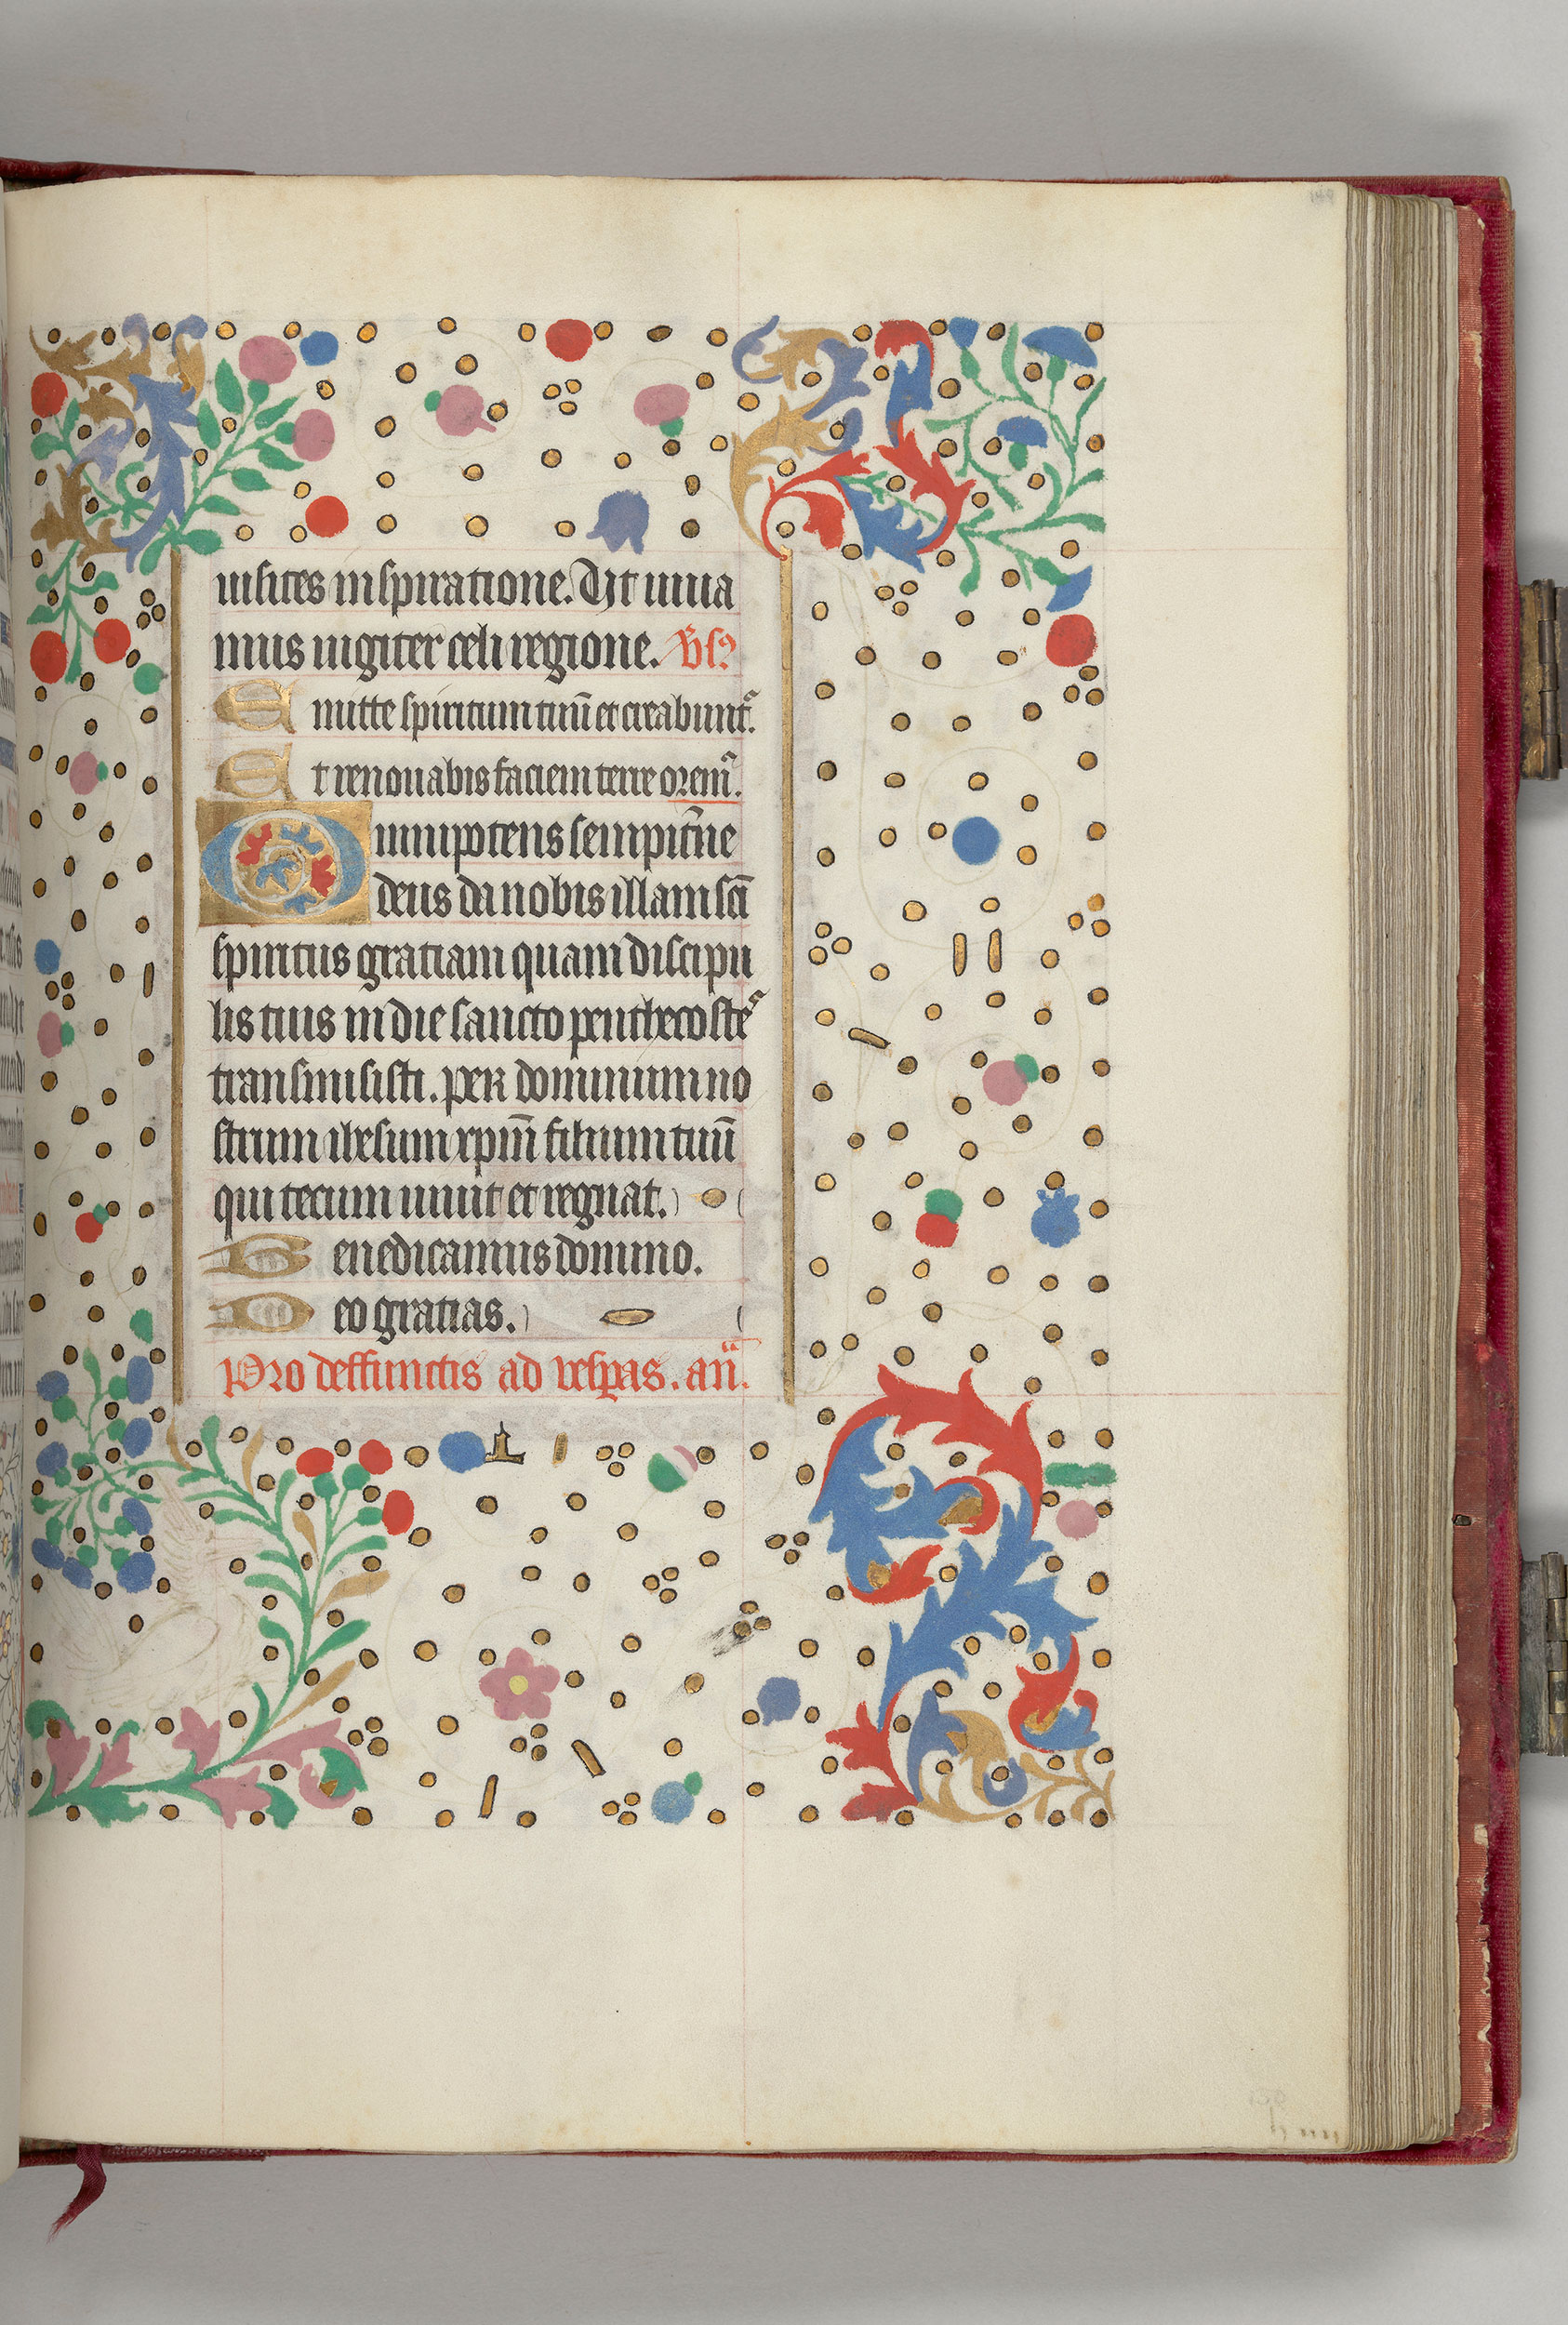 uisites inspiratione. Ut uiua
mus iugiter celi regione. V̄sꝰ
Emitte spiritum tuū et creabunt᷑.
Et renouabis faciem terre orem᷑.
Omnipotens sempit̄ne
deus da nobis illam sc̄i
spiritus gratiam quam discipu
lis tuis in die sancto penthecoste᷑
transmisisti. per dominum no
strum ihesum xp̄m filium tuū
qui tecum uiuit et regnat.
Benedicamus domino.
Deo gratias.
Pro deffunctis ad vesp̄as. an̄.
149